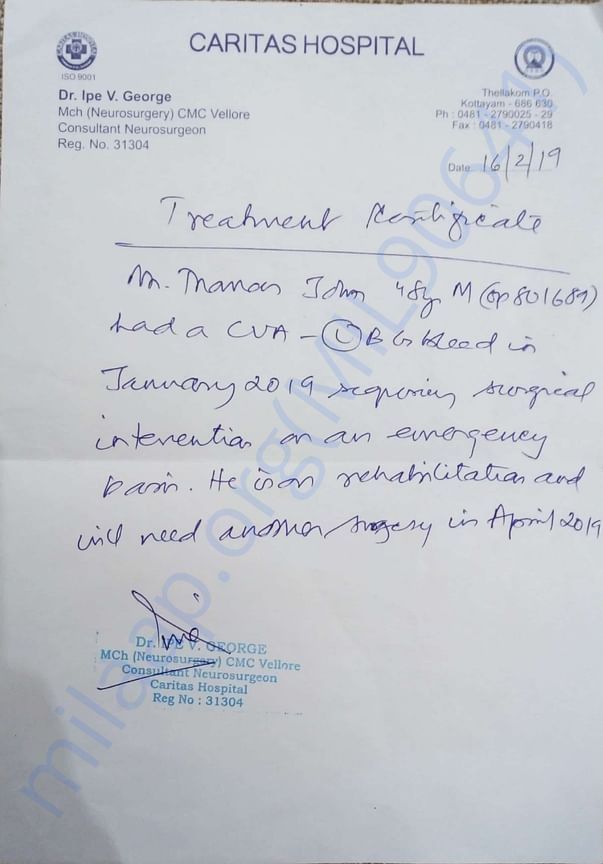 CARITAS HOSPITAL
CARITAS HOSPITAL
ISO 9001
Dr. Ipe V. George
Mch (Neurosurgery) CMC Vellore
Consultant Neurosurgeon
Reg. No. 31304
Thellakom P.O.
Kottayam - 686 630
Ph : 0481 - 2790025 - 29
Fax : 0481 - 2790418
Date: 16/2/19
Treatment Certificate
Mr. John 48y M (op 801689)
had a CVA - (L) BG bleed in
January 2019 requiring surgical
intervention on an emergency
basis. He is on rehabilitation and
will need another surgery in April 2019
Dr. IPE V. GEORGE
MCh (Neurosurgery) CMC Vellore
Consultant Neurosurgeon
Caritas Hospital
Reg No : 31304